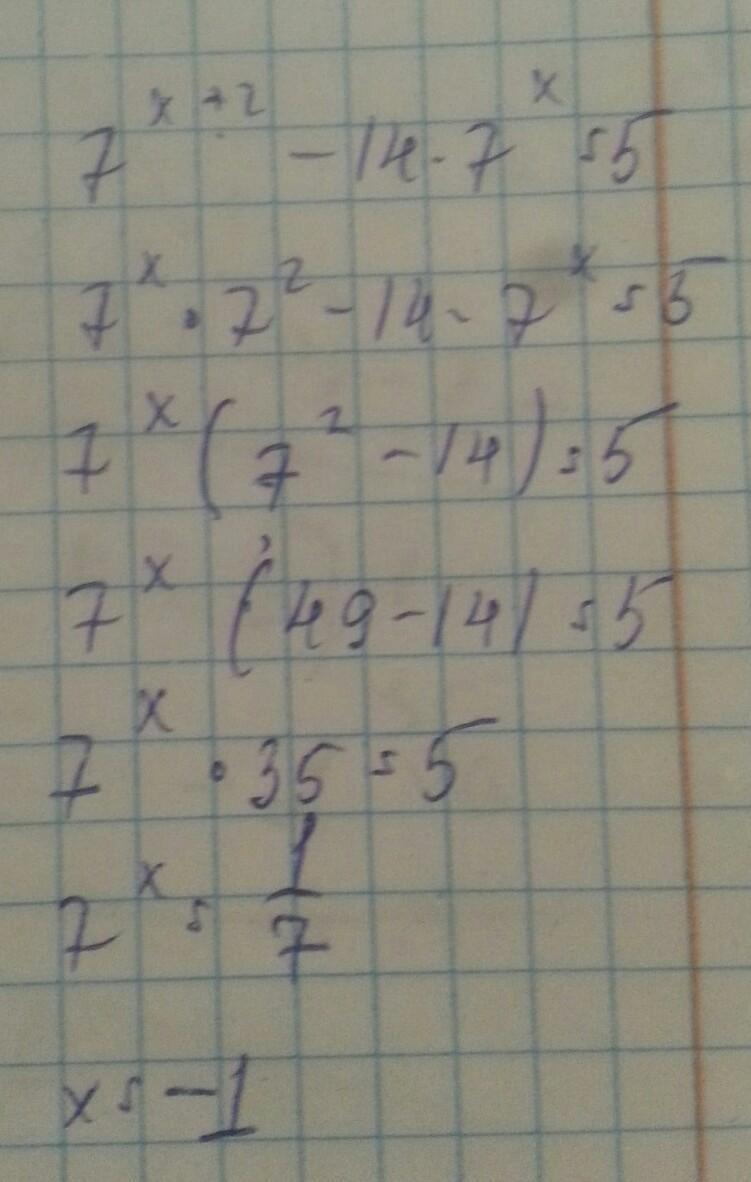 7^(x+2) - 14 · 7^x = 5
7^x · 7^2 - 14 · 7^x = 5
7^x (7^2 - 14) = 5
7^x (49 - 14) = 5
7^x · 35 = 5
7^x = 1/7
x = -1